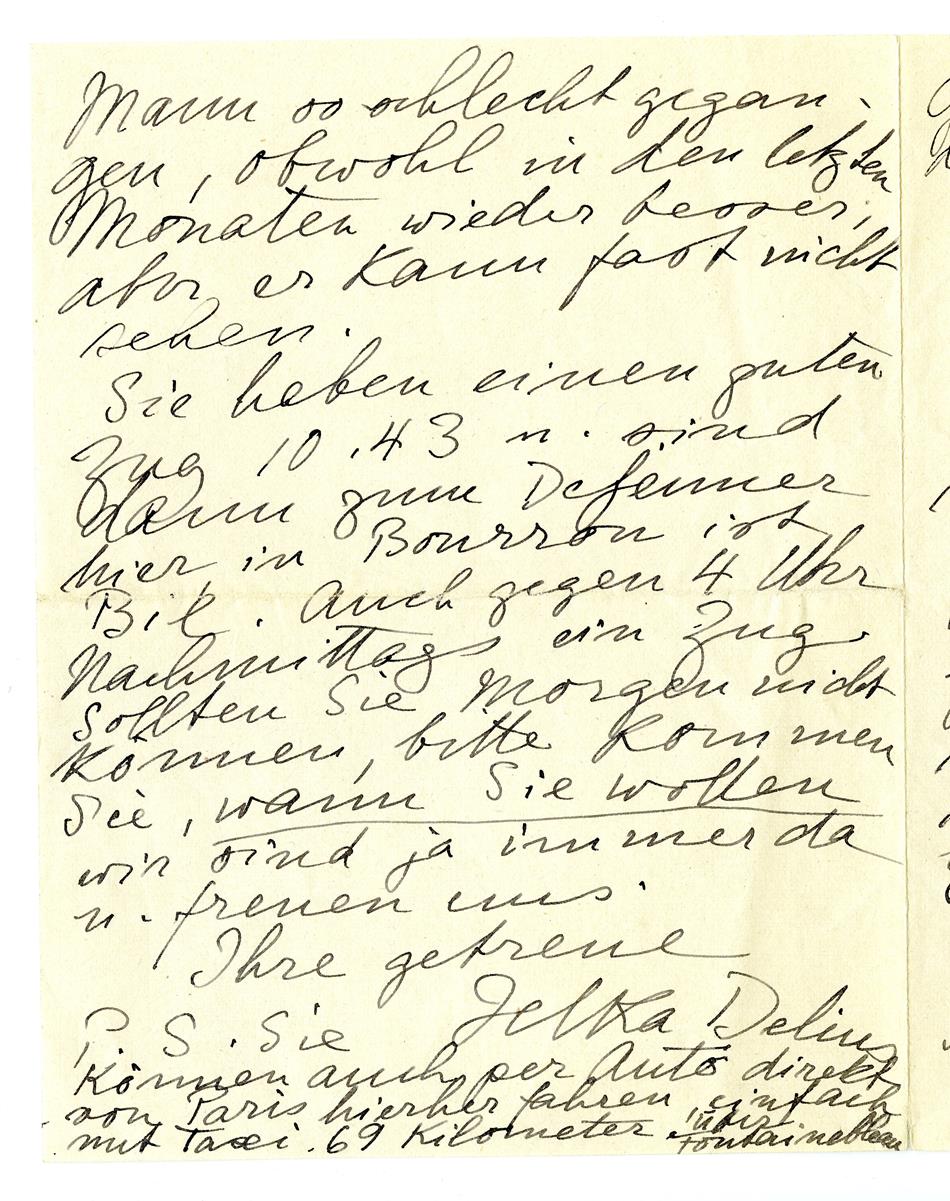 Mann so schlecht gegan-
gen, obwohl in den letzten
Monaten wieder besser,
aber er kann fast nicht
sehen.
Sie haben einen guten
Zug 10.43 u. sind
dann zum Dejeuner
hier, in Bourron ist
Bil. Auch gegen 4 Uhr
Nachmittags ein Zug.
Sollten Sie Morgen nicht
können, bitte kommen
Sie, wann Sie wollen
wir sind ja immer da
u. freuen uns.
Ihre getreue
Jelka Delius
P. S. Sie
können auch per Auto direkt
von Paris hierher fahren, einfach
mit Taxi. 69 Kilometer über
Fontainebleau